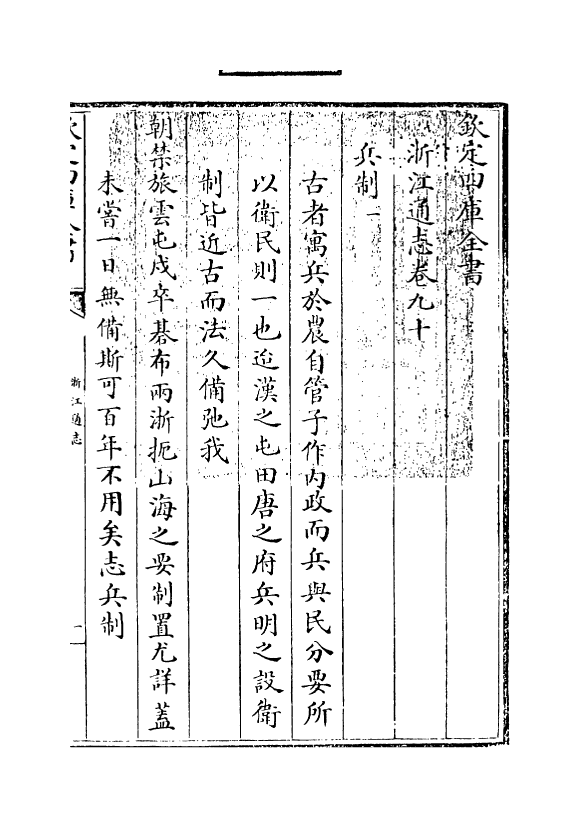 欽定四庫全書
浙江通志卷九十
兵制一
古者寓兵於農自管子作内政而兵與民分要所
以衛民則一也迨漢之屯田唐之府兵明之設衛
制皆近古而法久備弛我
朝禁旅雲屯戍卒棊布兩浙扼山海之要制置尤詳蓋
未嘗一日無備斯可百年不用矣志兵制
欽定四庫全書
浙江通志
一